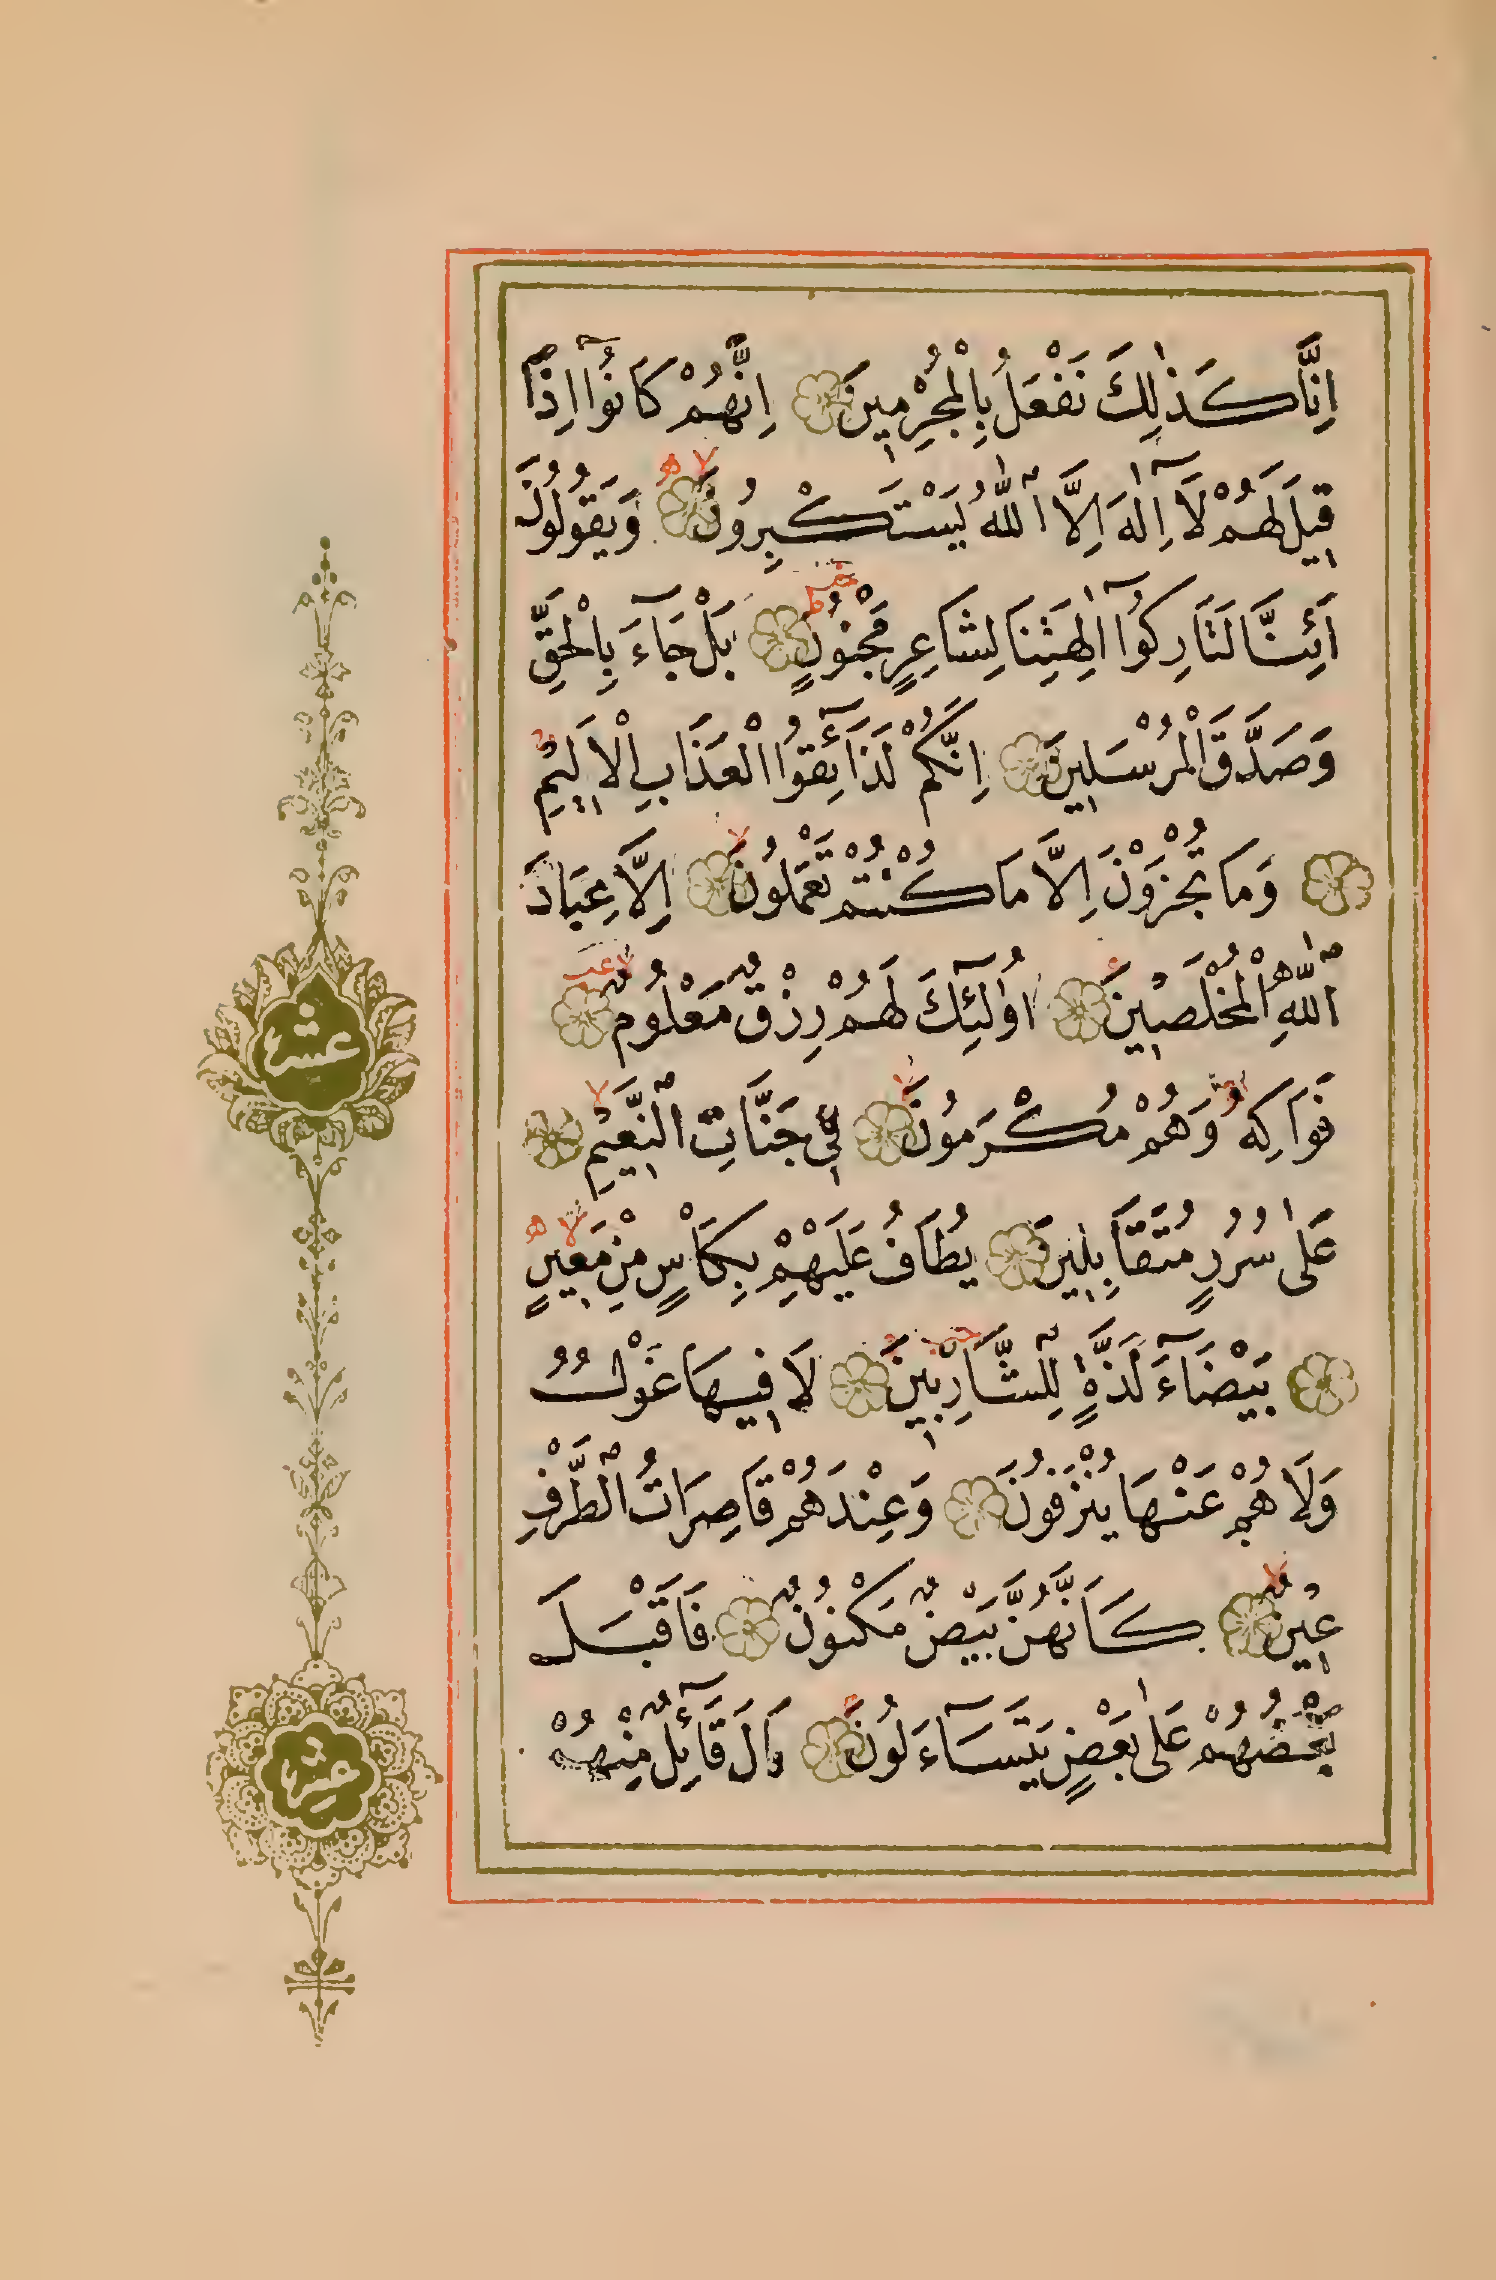 اِنَّا كَذٰلِكَ نَفْعَلُ بِالْمُجْرِمِينَ اِنَّهُمْ كَانُٓوا اِذَا
قِيلَ لَهُمْ لَٓا اِلٰهَ اِلَّا اللّٰهُ يَسْتَكْبِرُونَ وَيَقُولُونَ
اَئِنَّا لَتَارِكُٓوا اٰلِهَتِنَا لِشَاعِرٍ مَجْنُونٍ بَلْ جَٓاءَ بِالْحَقِّ
وَصَدَّقَ الْمُرْسَلِينَ اِنَّكُمْ لَذَٓائِقُوا الْعَذَابِ الْاَلِيمِ
وَمَا تُجْزَوْنَ اِلَّا مَا كُنْتُمْ تَعْمَلُونَ اِلَّا عِبَادَ
اللّٰهِ الْمُخْلَصِينَ اُو۬لٰٓئِكَ لَهُمْ رِزْقٌ مَعْلُومٌ
فَوَاكِهُ وَهُمْ مُكْرَمُونَ فِي جَنَّاتِ النَّعِيمِ
عَلٰى سُرُرٍ مُتَقَابِلِينَ يُطَافُ عَلَيْهِمْ بِكَاْسٍ مِنْ مَعِينٍ
بَيْضَٓاءَ لَذَّةٍ لِلشَّارِبِينَ لَا فِيهَا غَوْلٌ
وَلَا هُمْ عَنْهَا يُنْزَفُونَ وَعِنْدَهُمْ قَاصِرَاتُ الطَّرْفِ
عِينٌ كَاَنَّهُنَّ بَيْضٌ مَكْنُونٌ فَاَقْبَلَ
بَعْضُهُمْ عَلٰى بَعْضٍ يَتَسَٓاءَلُونَ قَالَ قَٓائِلٌ مِنْهُمْ
عشر
عشر